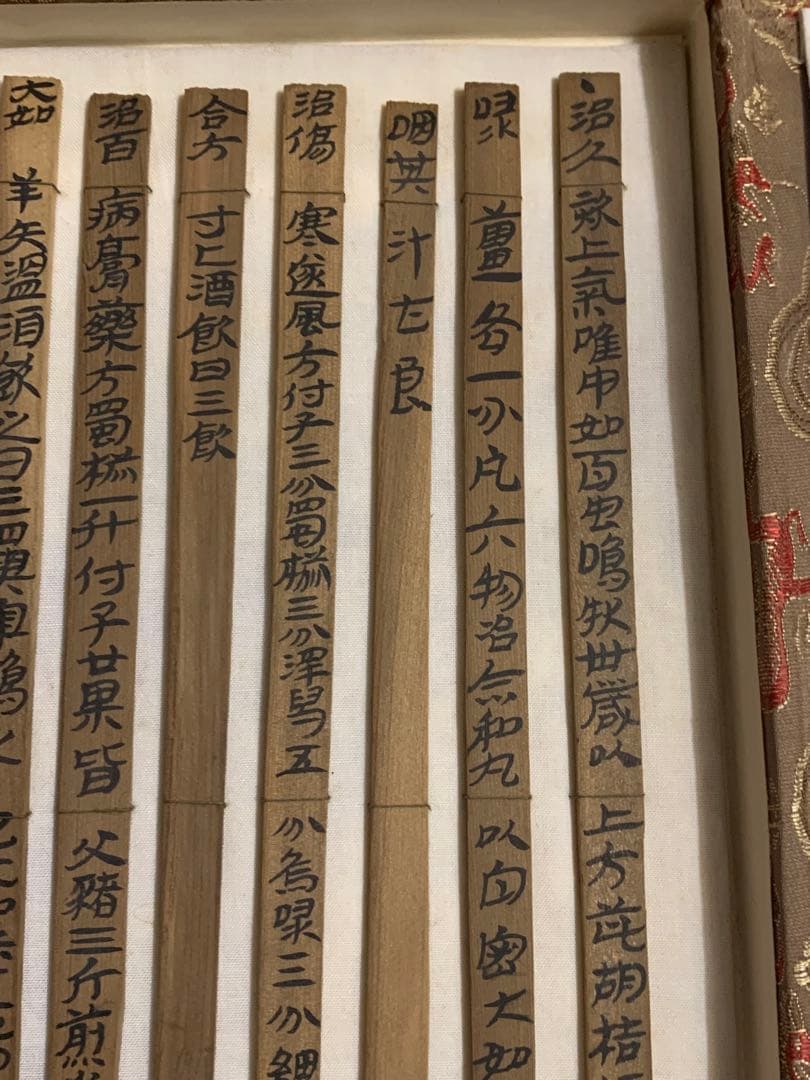 治久欬上氣喉中如百虫鳴狀丗歲以上方茈胡桔
喙薑各一分凡六物冶合和丸以白密大如
咽其汁甚良
治傷寒遂風方付子三分蜀椒三分澤舄五分烏喙三分細
合方寸匕酒飲日三飲
治百病膏藥方蜀椒一升付子廿果皆父豬三斤煎
大如羊矢溫酒飲之日三四